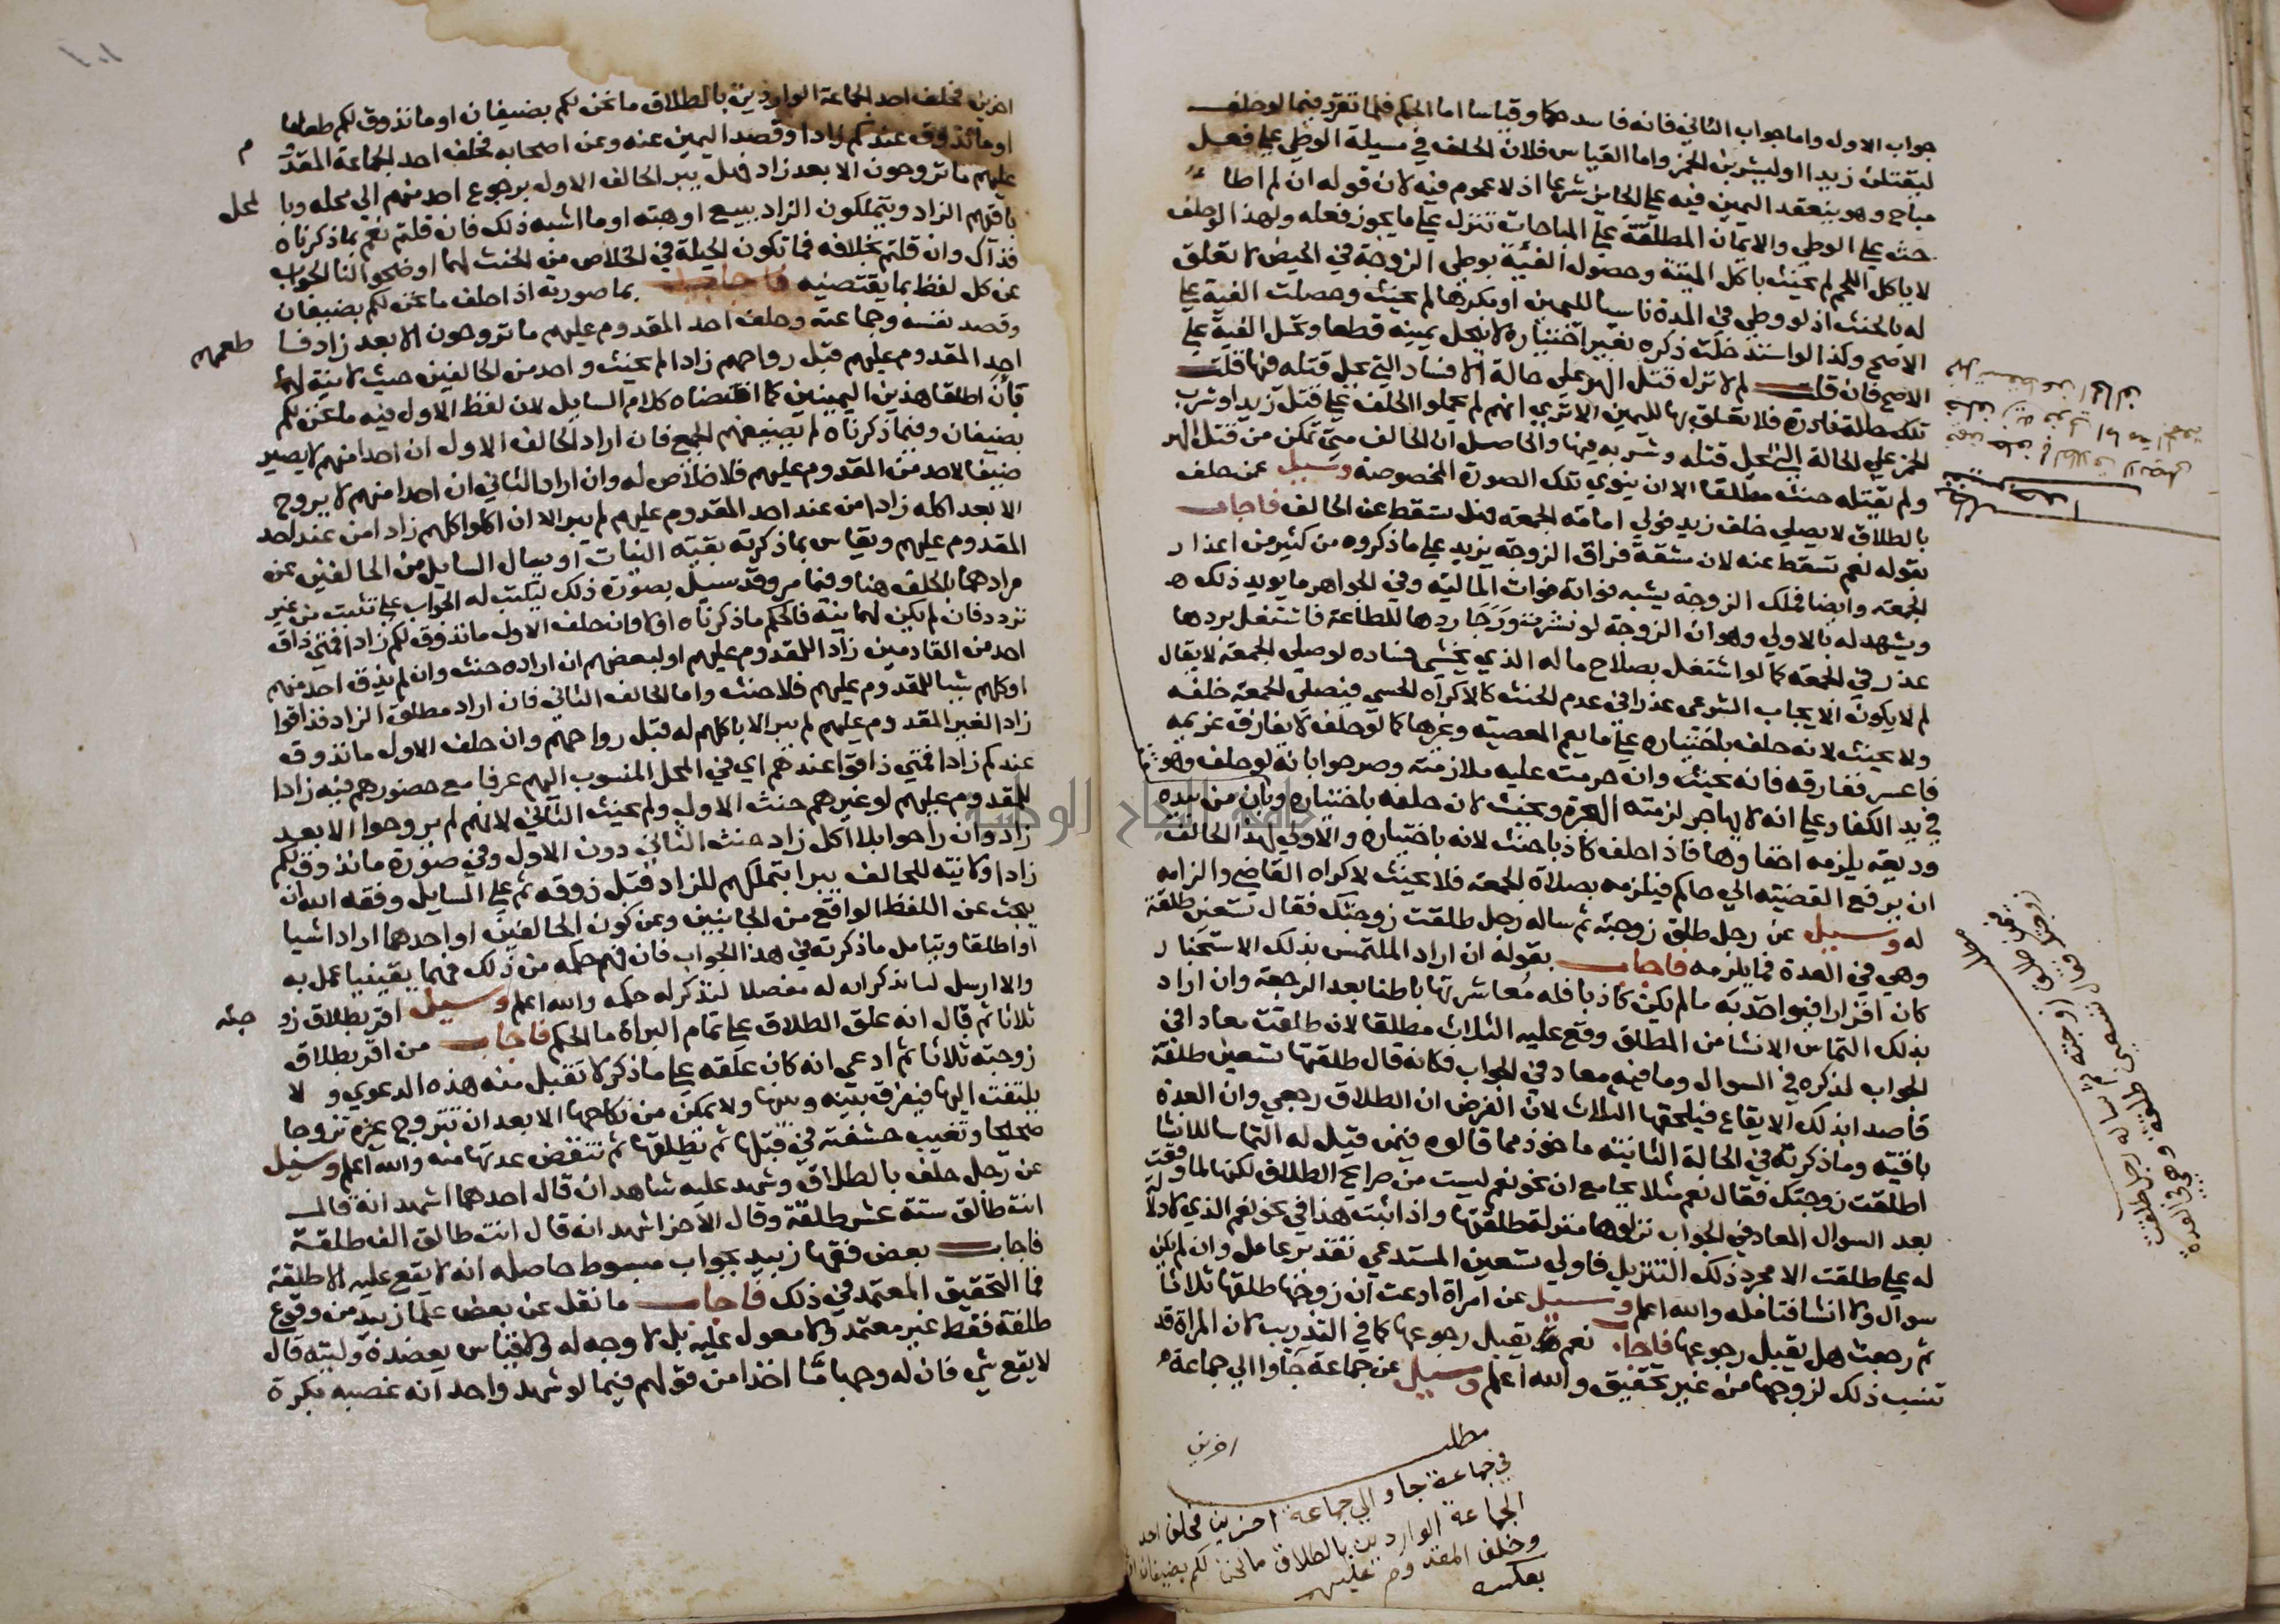 جواب الاول واما جواب الثاني فانه فاسد حكما وقياسا اما الحكم فلما تقرر فيما لو حلف
ليقتلن زيدا او ليشربن الخمر واما القياس فلان الحلف في مسيلة الوطي على فعل
مباح وهو ينعقد اليمين فيه على الجايز شرعا اذ لا عموم فيه لان قوله ان لم اطا
حث على الوطي والايمان المطلقة على المباحات تنزل على ما يجوز فعله ولهذا لو حلف
لا ياكل اللحم لم يحنث باكل الميتة وحصول الفيئة بوطي الزوجة في الحيض لا تعلق
له بالحنث اذ لو وطي في المدة ناسيا لليمين او مكرها لم يحنث وحصلت الفية على
الاصح وكذا لو استدخلت ذكره بغير اختياره لا ينحل يمينه قطعا وتحل الفية على
الاصح فان قلت لم لا تزل قتل الهر على حالة الافساد التي يحل قتله فيها قلت
تلك حالة نادرة فلا تعلق بها لليمين الا ترى انهم لم يحملوا الحلف على قتل زيد او شرب
الخمر على الحالة التي يحل قتله وشربه فيها والحاصل ان الحالف متى تمكن من قتل الهر
ولم يقتله حنث مطلقا الا ان ينوي تلك الصورة المخصوصة وسيل عمن حلف
بالطلاق لا يصلي خلف زيد فولي امامة الجمعة هل تسقط عن الحالف فاجاب
بقوله نعم تسقط عنه لان مشقة فراق الزوجة يزيد على ما ذكروه من كثير من اعذار
الجمعة وايضا فملك الزوجة يشبه فواته فوات المالية وفي الجواهر ما يويد ذلك
ويشهد له بالاولى وهو ان الزوجة لو نشزت ورجا ردها للطاعة فاشتغل بردها
عذر في الجمعة كما لو اشتغل بصلاح ماله الذي يخشى فساده لو صلى الجمعة لا يقال
لم لا يكون الايجاب الشرعي عذرا في عدم الحنث كالاكراه الحسي فيصلي الجمعة خلفه
ولا يحنث لانه حلف باختياره على ما يعم المعصية وغيرها كما لو حلف لا يفارق غريمه
فاعسر ففارقه فانه يحنث وان حرمت عليه ملازمته وصرحوا بانه لو حلف وهو
في يد الكفار على انه لا يهاجر لزمته الهجرة ويحنث لان حلفه باختياره وبان من بيده
وديعة يلزمه اخفاوها فاذا حلف كاذبا حنث لانه باختياره والاولى لهذا الحالف
ان يرفع القضية الى حاكم فيلزمه بصلاة الجمعة فلا يحنث لاكراه القاضي والزامه
له وسيل عن رجل طلق زوجته ثم ساله رجل طلقت زوجتك فقال تسعين طلقة
وهي في العدة فما يلزمه فاجاب بقوله ان اراد الملتمس بذلك الاستخبار
كان اقرارا فيواخذ به ما لم يكن كاذبا فله معاشرتها باطنا بعد الرجعة وان اراد
بذلك التماس الانشا من المطلق وقع عليه الثلاث مطلقا لان طلقت معاد في
الجواب لذكره في السوال وما فيه معاد في الجواب فكانه قال طلقتها تسعين طلقة
قاصدا بذلك الايقاع فيلحقها الثلاث لان الفرض ان الطلاق رجعي وان العدة
باقية وما ذكرته في الحالة الثانية ماخوذ مما قالوه فيمن قيل له التماسا للانشا
اطلقت زوجتك فقال نعم مثلا بجامع ان نحو نعم ليست من صرايح الطلاق لكنها لما وقعت
بعد السوال المعاد في الجواب نزلوها منزلة طلقتها واذا ثبت هذا في نحو نعم الذي لا دلالة
له على طلقت الا مجرد ذلك التنزيل فاولى تسعين المستدعي تقدير عامل وان لم يكن
سوال ولا انشا فتامله والله اعلم وسيل عن امراة ادعت ان زوجها طلقها ثلاثا
ثم رجعت هل تقبل رجوعها فاجاب نعم تقبل رجوعها كما في التدريب لان المراة قد
تنسب ذلك لزوجها من غير تحقيق والله اعلم وسيل عن جماعة جاوا الى جماعة
اخرين
مطلب
في جماعة جاو الى جماعة اخرين فحلف احد
الجماعة الواردين بالطلاق ما نحن لكم بضيفان
وحلف المقدوم عليهم
بعكسه
اخرين فحلف احد الجماعة الواردين بالطلاق ما نحن لكم بضيفان او ما نذوق لكم طعاما
او ما نذوق عندكم زادا وقصد اليمين عنه وعن اصحابه فحلف احد الجماعة المقدوم
عليهم ما تروحون الا بعد زاد فهل يبر الحالف الاول برجوع احد منهم الى محله وبا
باقيهم الزاد ويتملكون الزاد ببيع او هبة او ما اشبه ذلك فان قلتم نعم بما ذكرناه
فذاك وان قلتم بخلافه فما تكون الحيلة في الخلاص من الحنث لهما اوضحوا لنا الجواب
عن كل لفظ بما يقتضيه فاجاب بما صورته اذا حلف ما نحن لكم بضيفان
وقصد نفسه وجماعته وحلف احد المقدوم عليهم ما تروحون الا بعد زاد فا طعمهم
احد المقدوم عليهم قبل رواحهم زادا لم يحنث واحد من الحالفين حيث لا نية لهما
بان اطلقا هذين اليمينين كما اقتضاه كلام السايل لان لفظ الاول فيه ما نحن لكم
بضيفان وفيما ذكرناه لم تضيفهم الجمع فان اراد الحالف الاول ان احدا منهم لا يصير
ضيفا لاحد من المقدوم عليهم فلا خلاص له وان اراد الثاني ان احدا منهم لا يروح
الا بعد اكله زادا من عند احد المقدوم عليهم لم يبر الا ان اكلوا كلهم زادا من عند احد
المقدوم عليهم ويقاس بما ذكرته بقية النيات او يسال السايل من الحالفين عن
مرادهما بالحلف هنا وفيما مر وقد سيل بصورة ذلك ليكتب له الجواب على تثبت من غير
تردد فان لم يكن لهما نية فالحكم ما ذكرناه اولا وان حلف الاول ما نذوق لكم زادا فمتى ذاق
احد من القادمين زادا للمقدوم عليهم او لبعضهم ان اراده حنث وان لم يذق احد منهم
او كلهم شيا للمقدوم عليهم فلا حنث واما الحالف الثاني فان اراد مطلق الزاد فذاقوا
زادا لغير المقدوم عليهم لم يبر الا باكلهم له قبل رواحهم وان حلف الاول ما نذوق
عندكم زادا فمتى ذاقوا عندهم اي في المحل المنسوب اليهم عرفا مع حضورهم فيه زادا
للمقدوم عليهم او غيرهم حنث الاول ولم يحنث الثاني لانهم لم يروحوا الا بعد
زاد وان راحوا بلا اكل زاد حنث الثاني دون الاول وفي صورة ما نذوق لكم
زادا ولا نية للحالف يبر ايتملكهم للزاد قبل ذوقه ثم على السايل وفقه الله ان
يبحث عن اللفظ الواقع من الجانبين وعن كون الحالفين او احدهما ارادا شيا
او اطلقا ويتامل ما ذكرته في هذا الجواب فان فهم حكمه من ذلك فهما يقينيا عمل به
والا ارسل لنا بذكر انه له مفصلا لنذكر له حكمه والله اعلم وسيل اقر بطلاق زوجته
ثلاثا ثم قال انه علق الطلاق على تمام البراة ما الحكم فاجاب من اقر بطلاق
زوجته ثلاثا ثم ادعى انه كان علقه على ما ذكر لا تقبل منه هذه الدعوى ولا
يلتفت اليها فيفرق بينه وبينها ولا يمكن من نكاحها الا بعد ان تتزوج غيره تزوجا
صحيحا وتغيب حشفته في قبلها ثم يطلقها ثم تنقضي عدتها منه والله اعلم وسيل
عن رجل حلف بالطلاق وشهد عليه شاهدان قال احدهما اشهد انه قال
انت طالق ستة عشر طلقة وقال الاخر اشهد انه قال انت طالق الف طلقة
فاجاب بعض فقها زبيد بجواب مبسوط حاصله انه لا يقع عليه الا طلقة
فما التحقيق المعتمد في ذلك فاجاب ما نقل عن بعض علما زبيد من وقوع
طلقة فقط غير معتمد ولا معول عليه بل لا وجه له ولا قياس يعضده وليته قال
لا يقع شي فان له وجها ما اخذا من قولهم فيما لو شهد واحد انه غصبه بكرة